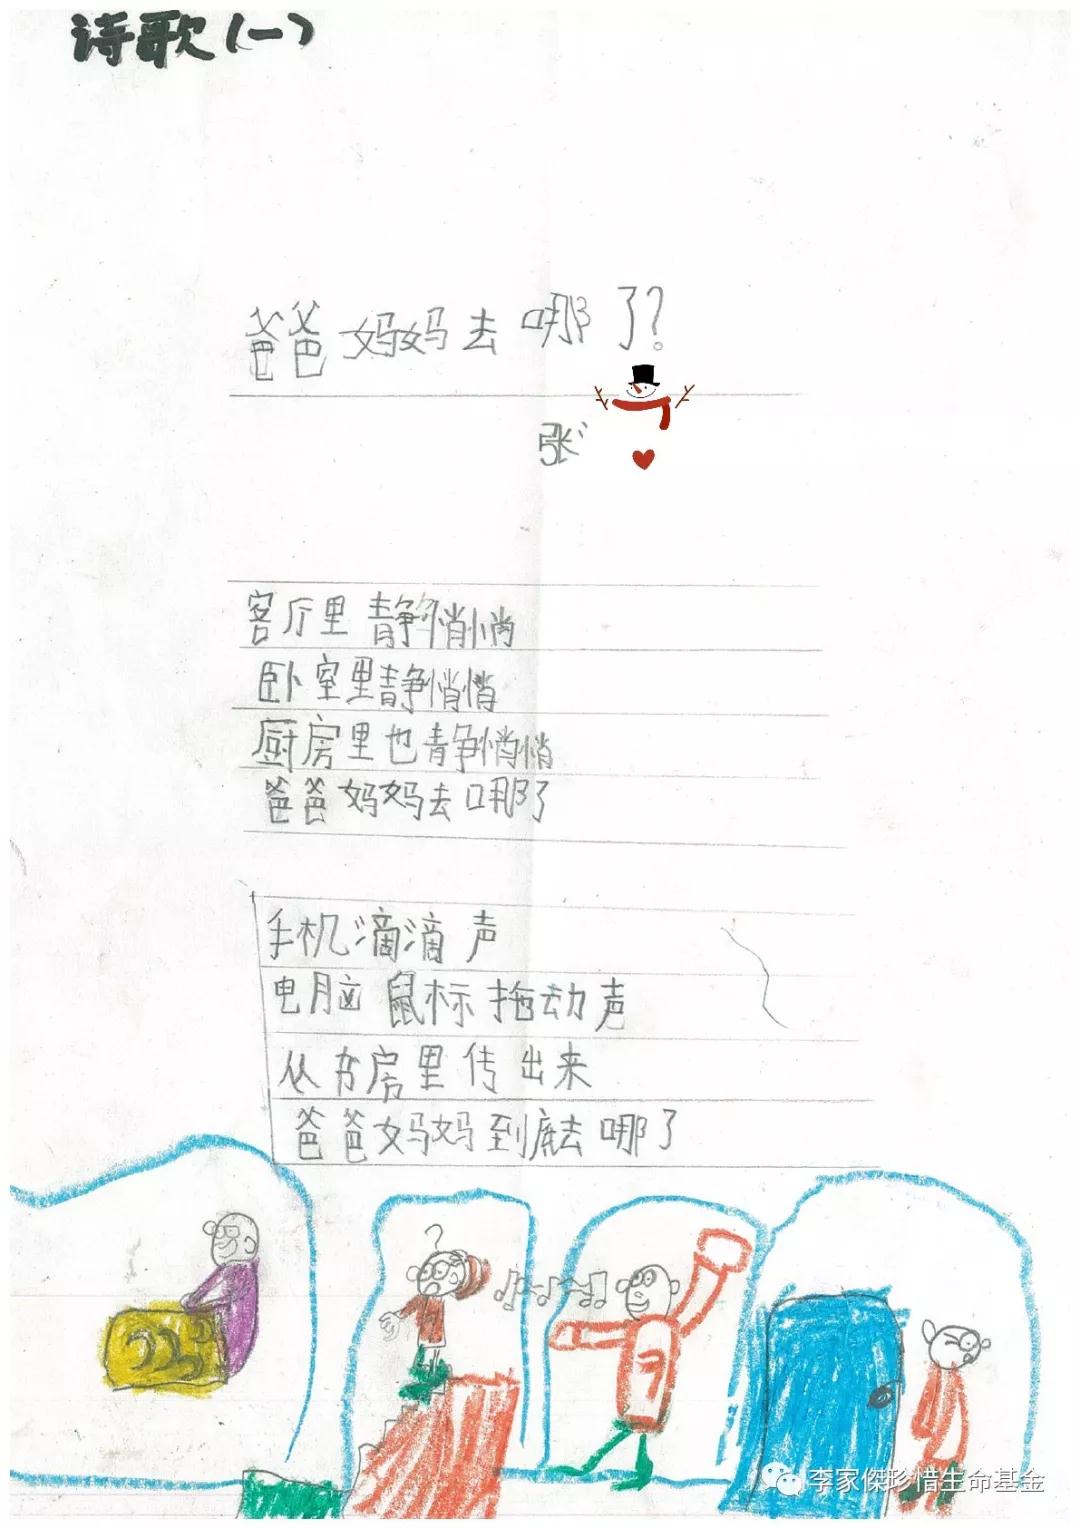 诗歌(一)
爸爸妈妈去哪了?
张
客厅里静悄悄
卧室里静悄悄
厨房里也静悄悄
爸爸妈妈去哪了
手机滴滴声
电脑鼠标拖动声
从书房里传出来
爸爸妈妈到底去哪了
?
李家傑珍惜生命基金